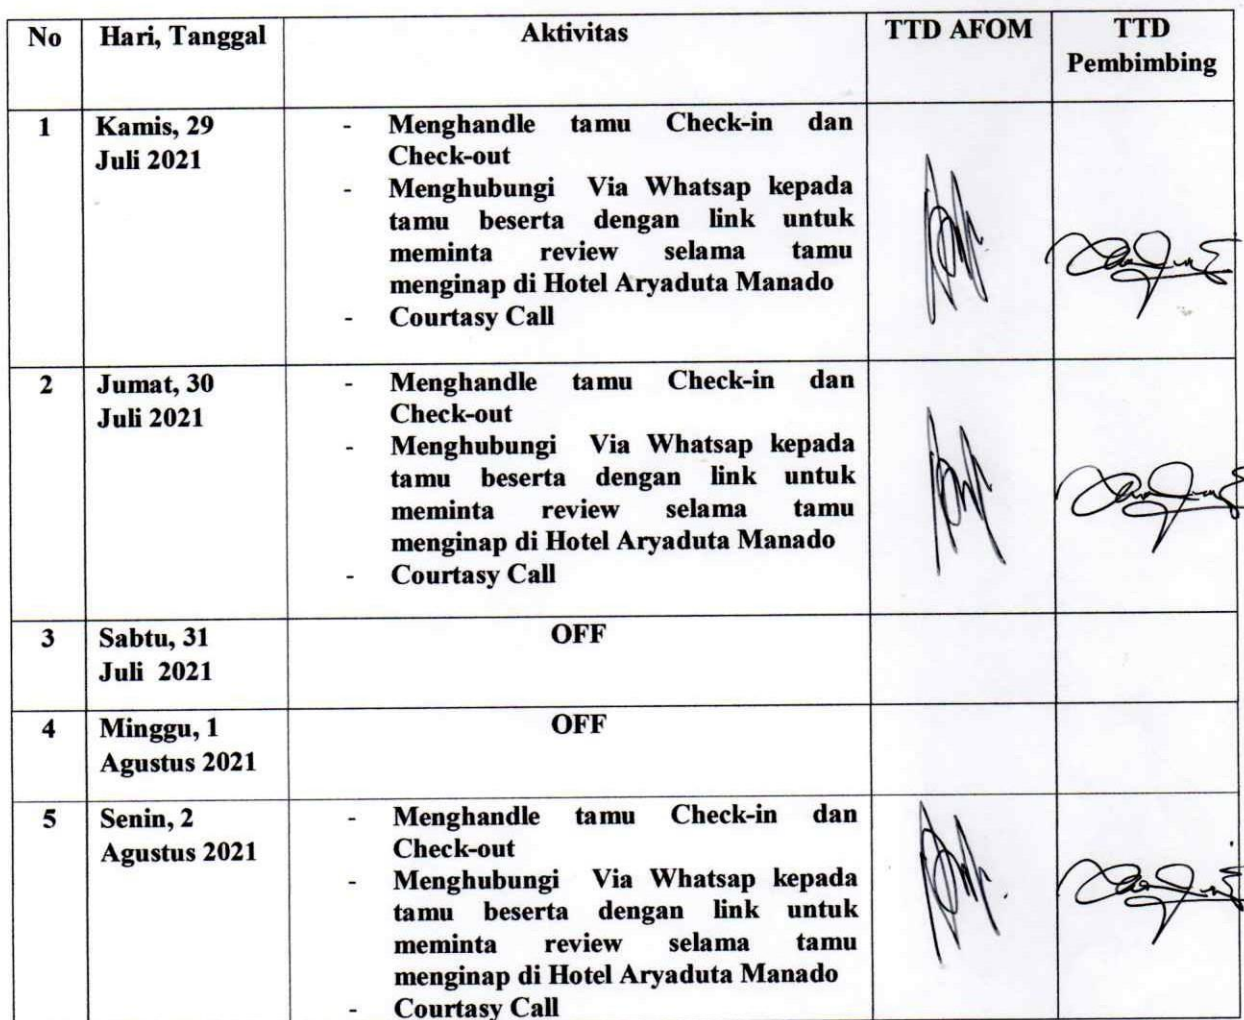 No Hari, Tanggal Aktivitas TTD AFOM TTD
Pembimbing
1 Kamis, 29 - Menghandle tamu Check-in dan
Juli 2021 Check-out
- Menghubungi Via Whatsap kepada
tamu beserta dengan link untuk
meminta review selama tamu
menginap di Hotel Aryaduta Manado
- Courtasy Call
2 Jumat, 30 - Menghandle tamu Check-in dan
Juli 2021 Check-out
- Menghubungi Via Whatsap kepada
tamu beserta dengan link untuk
meminta review selama tamu
menginap di Hotel Aryaduta Manado
- Courtasy Call
3 Sabtu, 31 OFF
Juli 2021
4 Minggu, 1 OFF
Agustus 2021
5 Senin, 2 - Menghandle tamu Check-in dan
Agustus 2021 Check-out
- Menghubungi Via Whatsap kepada
tamu beserta dengan link untuk
meminta review selama tamu
menginap di Hotel Aryaduta Manado
- Courtasy Call